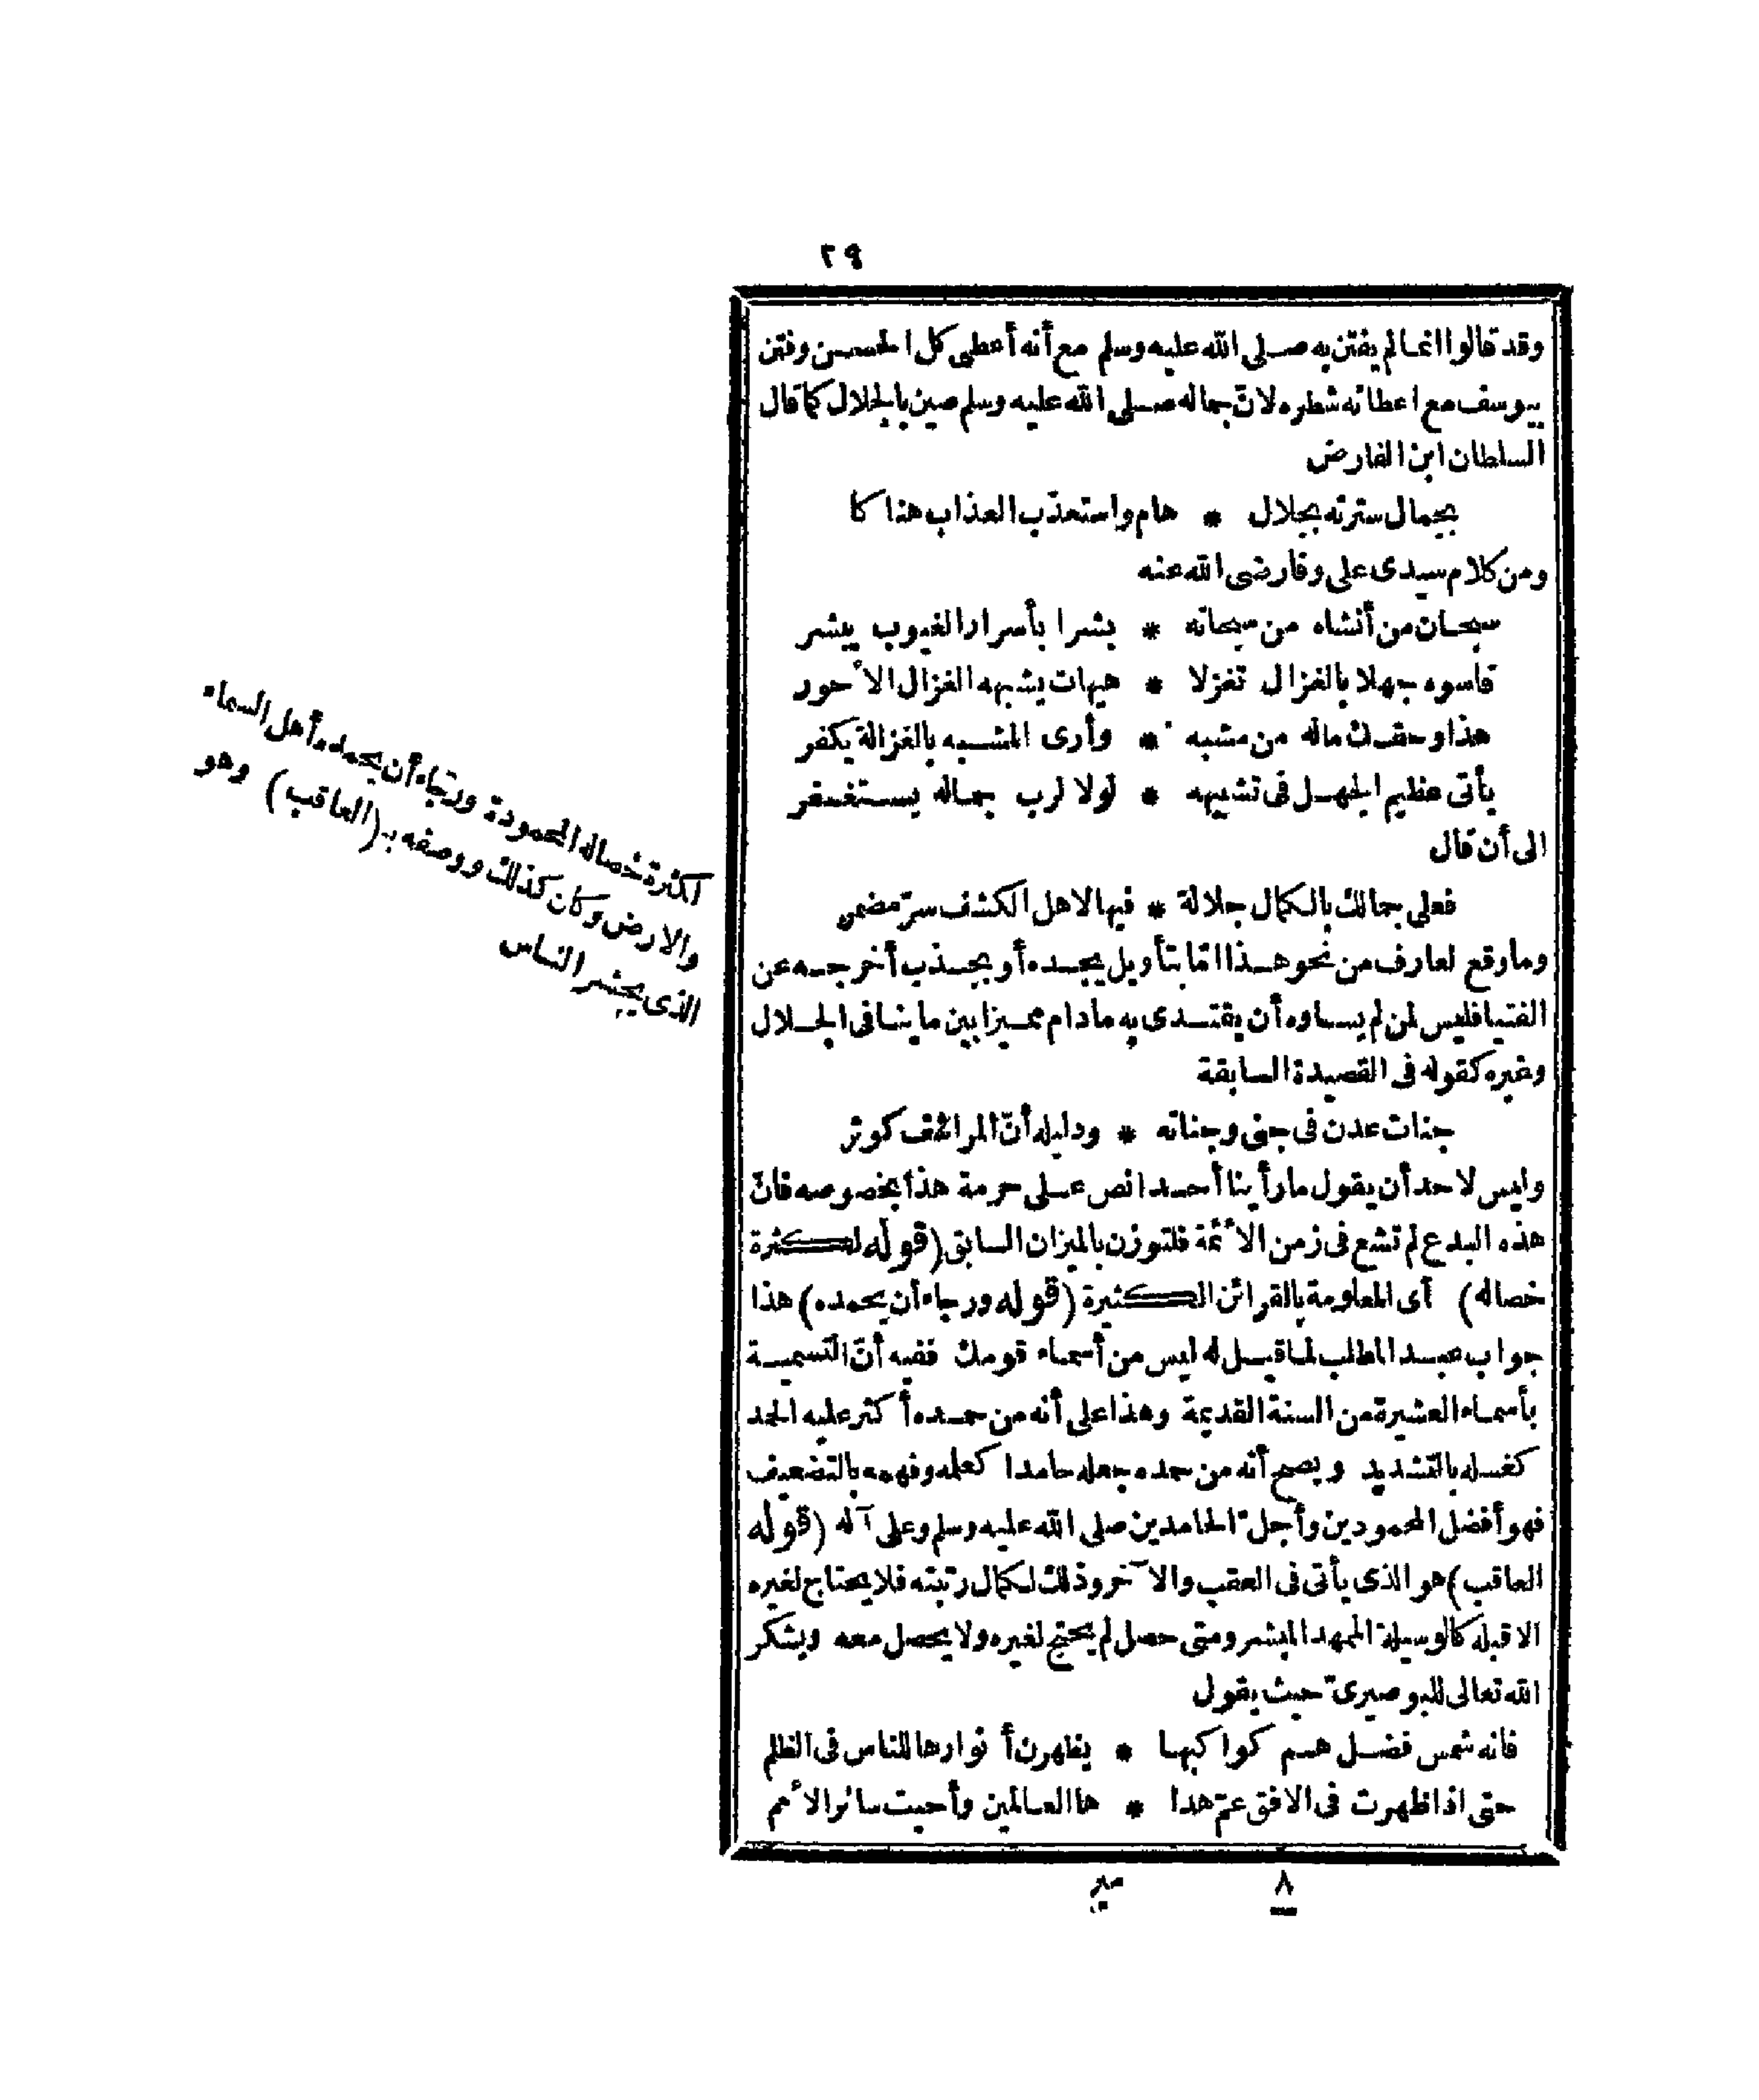 ٢٩
وقد قالوا انما لم يفتن به صلى الله عليه وسلم مع أنه أعطى كل الحسن وفتن
بيوسف مع اعطائه شطره لان جماله صلى الله عليه وسلم صين بالجلال كما قال
السلطان ابن الفارض
بجمال سترته بجلال * هام واستعذب العذاب هناكا
ومن كلام سيدى على وفا رضى الله عنه
سبحان من أنشاه من سبحاته * بشرا بأسرار الغيوب يبشر
قاسوه جهلا بالغزال تغزلا * هيهات يشبهه الغزال الأحور
هذا وحقك ماله من مشبه * وأرى المشبه بالغزالة يكفر
يأتى عظيم الجهل فى تشبيهه * لولا لرب جماله يستغفر
الى أن قال
فعلى جمالك بالكمال جلالة * فيها لاهل الكشف سرّ مضمر
وما وقع لعارف من نحو هذا امّا بتأويل يجده أو بجذب أخرجه عن
الفتيا فليس لمن لم يساوه أن يقتدى به مادام مميزا بين ما ينافى الجلال
وغيره كقوله فى القصيدة السابقة
جنات عدن فى جنى وجناته * ودليله أنّ المراشف كوثر
وليس لاحد أن يقول ما رأينا أحدا نص على حرمة هذا بخصوصه فانّ
هذه البدع لم تشع فى زمن الأئمة فلتوزن بالميزان السابق (قوله لكثرة
خصاله) أى المعلومة بالقرائن الكثيرة (قوله ورجاء أن يحمده) هذا
جواب عبد المطلب لما قيل له ليس من أسماء قومك ففيه أنّ التسمية
بأسماء العشيرة من السنة القديمة وهذا على أنه من حمده أكثر عليه الحمد
كغسله بالتشديد ويصح أنه من حمده جعله حامدا كعلمه وفهمه بالتضعيف
فهو أفضل المحمودين وأجلّ الحامدين صلى الله عليه وسلم وعلى آله (قوله
العاقب) هو الذى يأتى فى العقب والآخر وذلك لكمال رتبته فلا يحتاج لغيره
الا قبله كالوسيلة الممهد المبشر ومتى حصل لم يحتج لغيره ولا يحصل معه ويشكر
الله تعالى للبوصيرىّ حيث يقول
فانه شمس فضل هم كواكبها * يظهرن أنوارها للناس فى الظلم
حتى اذا ظهرت فى الافق عمّ هدا * ها العالمين وأحيت سائر الأمم
٨
مير
لكثرة خصاله المحمودة ورجاء أن يحمده أهل السماء
والارض وكان كذلك ووصفه بـ(العاقب) وهو
الذى يحشر الناس